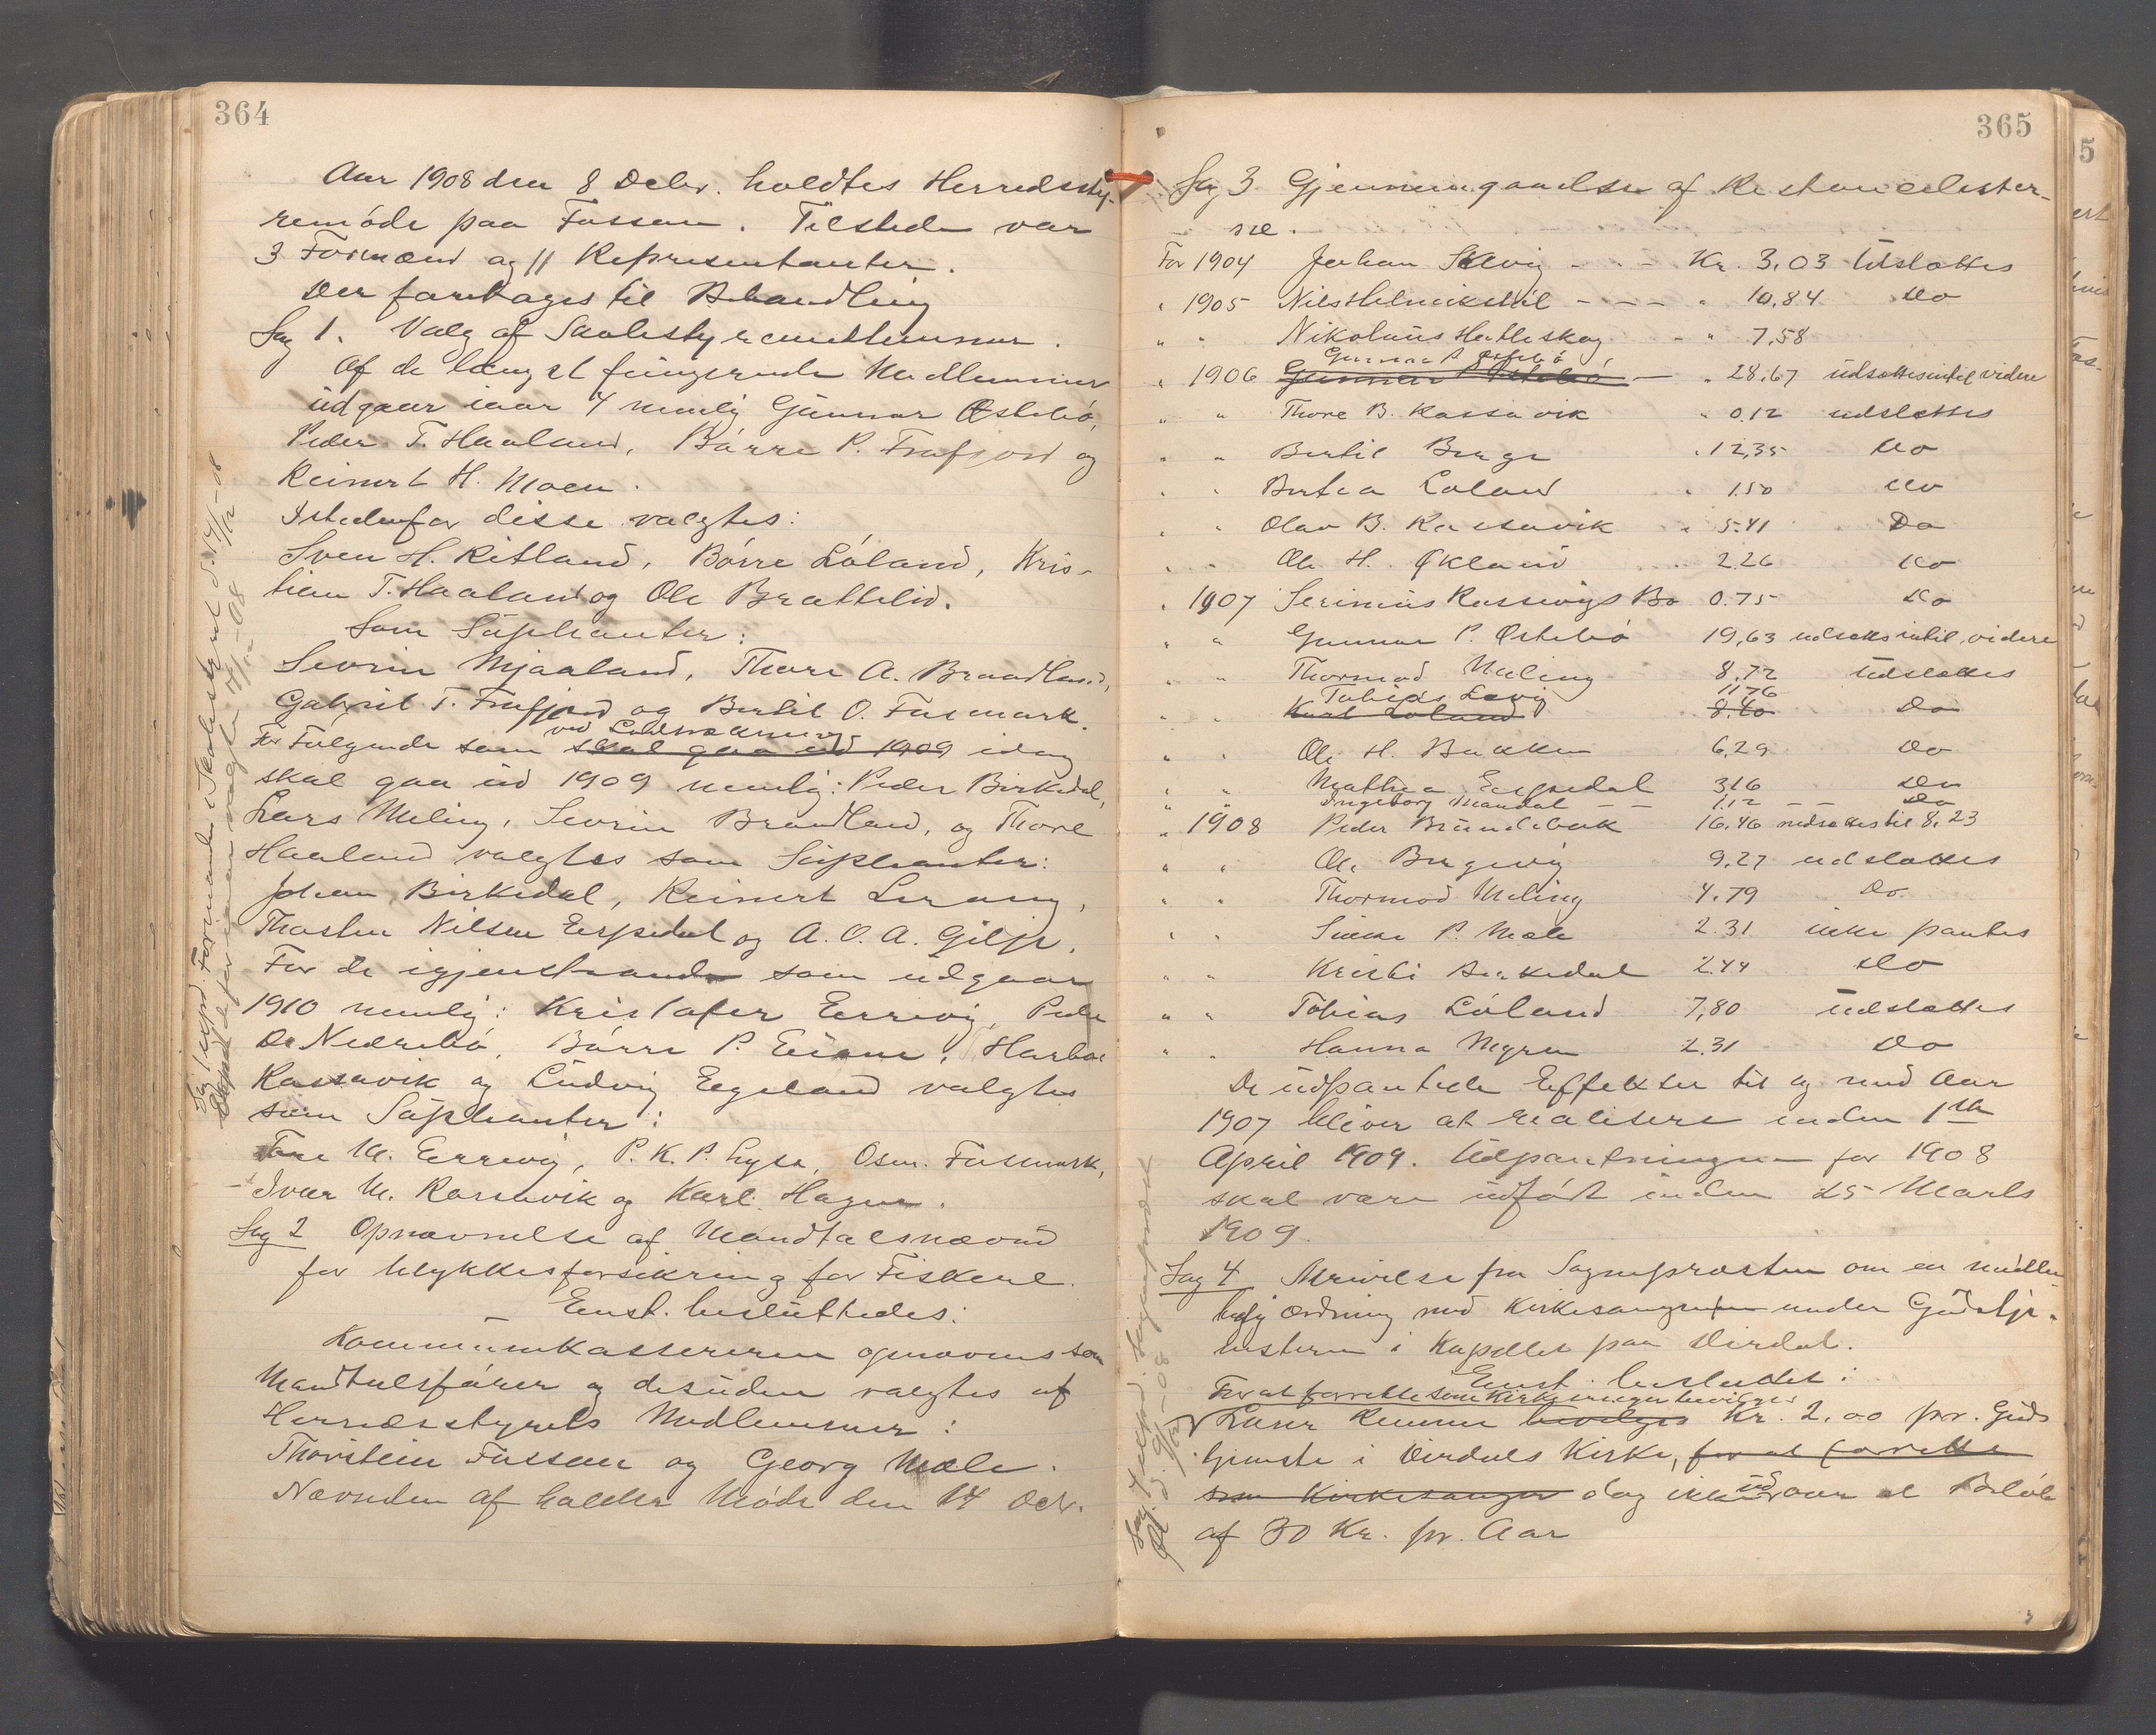 364
Aar 1908 den 8 Debr. holdtes Herredssty-
remöde paa Fossan. Tilstede var
3 Formænd og 11 Repræsentanter.
Der foretages til Behandling
Sag 1. Valg af Skolestyremedlemmer.
Af de længst fungerende Medlemmer
udgaar iaar 4 nemlig Gunnar Østebö,
Peder T. Haaland, Börre P. Frafjord og
Reinert H. Moen.
Istedenfor disse valgtes:
Sven H. Ritland, Börre Löland, Kris-
tian T. Haaland og Ole Brattelid.
Som Suplianter:
Sevrin Mjaaland, Thore A. Brandland,
Gabriel T. Frafjord og Bertil O. Fosmark.
ved Lodtrækning
For Fölgende som skal gaa ud 1909 idag
skal gaa ud 1909 nemlig: Peder Birkedal,
Lars Meling, Sevrin Brandland, og Thore
Haaland valgtes som Suplianter:
Johan Birkedal, Reinert Lerang,
Thosten Nilsen Espedal og A. O. A. Gilje.
For de igjenstaaende som udgaar
1910 nemlig: Kristofer Errevig, Peder
O. Nedrebö, Börre P. Eiane, Harbo
Rossavik og Ludvig Eegeland valgtes
som Suplianter:
Tore M. Errevig, P. K. P. Lyse, Osm. Fosmark,
Ivar M. Rossavik og Karl Hagen.
Sag 2 Opnævnelse af Mandtalsnævnd
for Ulykkesforsikring for Fiskere.
Enst. besluttedes:
Kommunekassereren opnævnes som
Mandtalsförer og desuden valgtes af
Herredsstyrets Medlemmer:
Thorstein Fossan og Georg Mæle.
Nævnden afholder Möde den 14 Debr.
Sag 1 exp. Formand i Skolestyret d. 14/12-08
365
Sag 3 Gjennemgaaelse af Restancelister-
ne.
For 1904 Johan Skevig - - - Kr. 3,03 udslettes
" 1905 Nils Helmikstöl - - - " 10,84 Do
" " Nikolaus Hatleskog " 7,58
Gunnar P. Østebö
" 1906 Gunnar P. Østebö - " 28,67 udsættes indtil videre
" " Thore B. Rossavik " 0,12 udslettes
" " Bertil Berge " 12,35 Do
" " Bertea Löland " 1,50 Do
" " Olav B. Rossavik " 5,41 Do
" " Ole H. Økland " 2.26 Do
" 1907 Serinius Rossevigs Bo 0.75 Do
" " Gunnar P. Østebö 19,63 udsættes indtil videre
" " Thormod Meling 8,72 udslettes
Tobias Levig 11.76
" " Knut Löland 8.40 Do
" " Ole H. Bakken 6,29 Do
" " Mathea Espedal 3,16 Do
" Ingeborg Mandal - - 1,12 - - Do
" 1908 Peder Brundebak 16,46 nedsættes til 8,23
" " Ole Bergevig 9,27 udslettes
" " Thormod Meling 4.79 Do.
" " Simon P. Mæle 2.31 ikke pantes
" " Kristi Birkedal 2.44 Do
" " Tobias Löland 7,80 udslettes
" " Hanna Myren 2.31 Do
De udpantede Effekter til og med Aar
1907 bliver at realisere inden 1ste
April 1909. Udpantningen for 1908
skal være udfört inden 25 Marts
1909.
Sag 4 Skrivelse fra Sognepresten om en midler-
tidig Ordning med Kirkesangeren under Gudstje-
nesteren i Kapellet paa Dirdal.
Enst. besluttet:
For at forrette som Kirkesanger bevilges
Lærer Remme bevilges Kr. 2,00 pr. Guds
tjeneste i Dirdals Kirke, for at forrette
som Kirkesanger dog ikke udover et Belöb
af 30 Kr. pr. Aar
Sag 4 exp. Sognepræst
d. 9/12-08